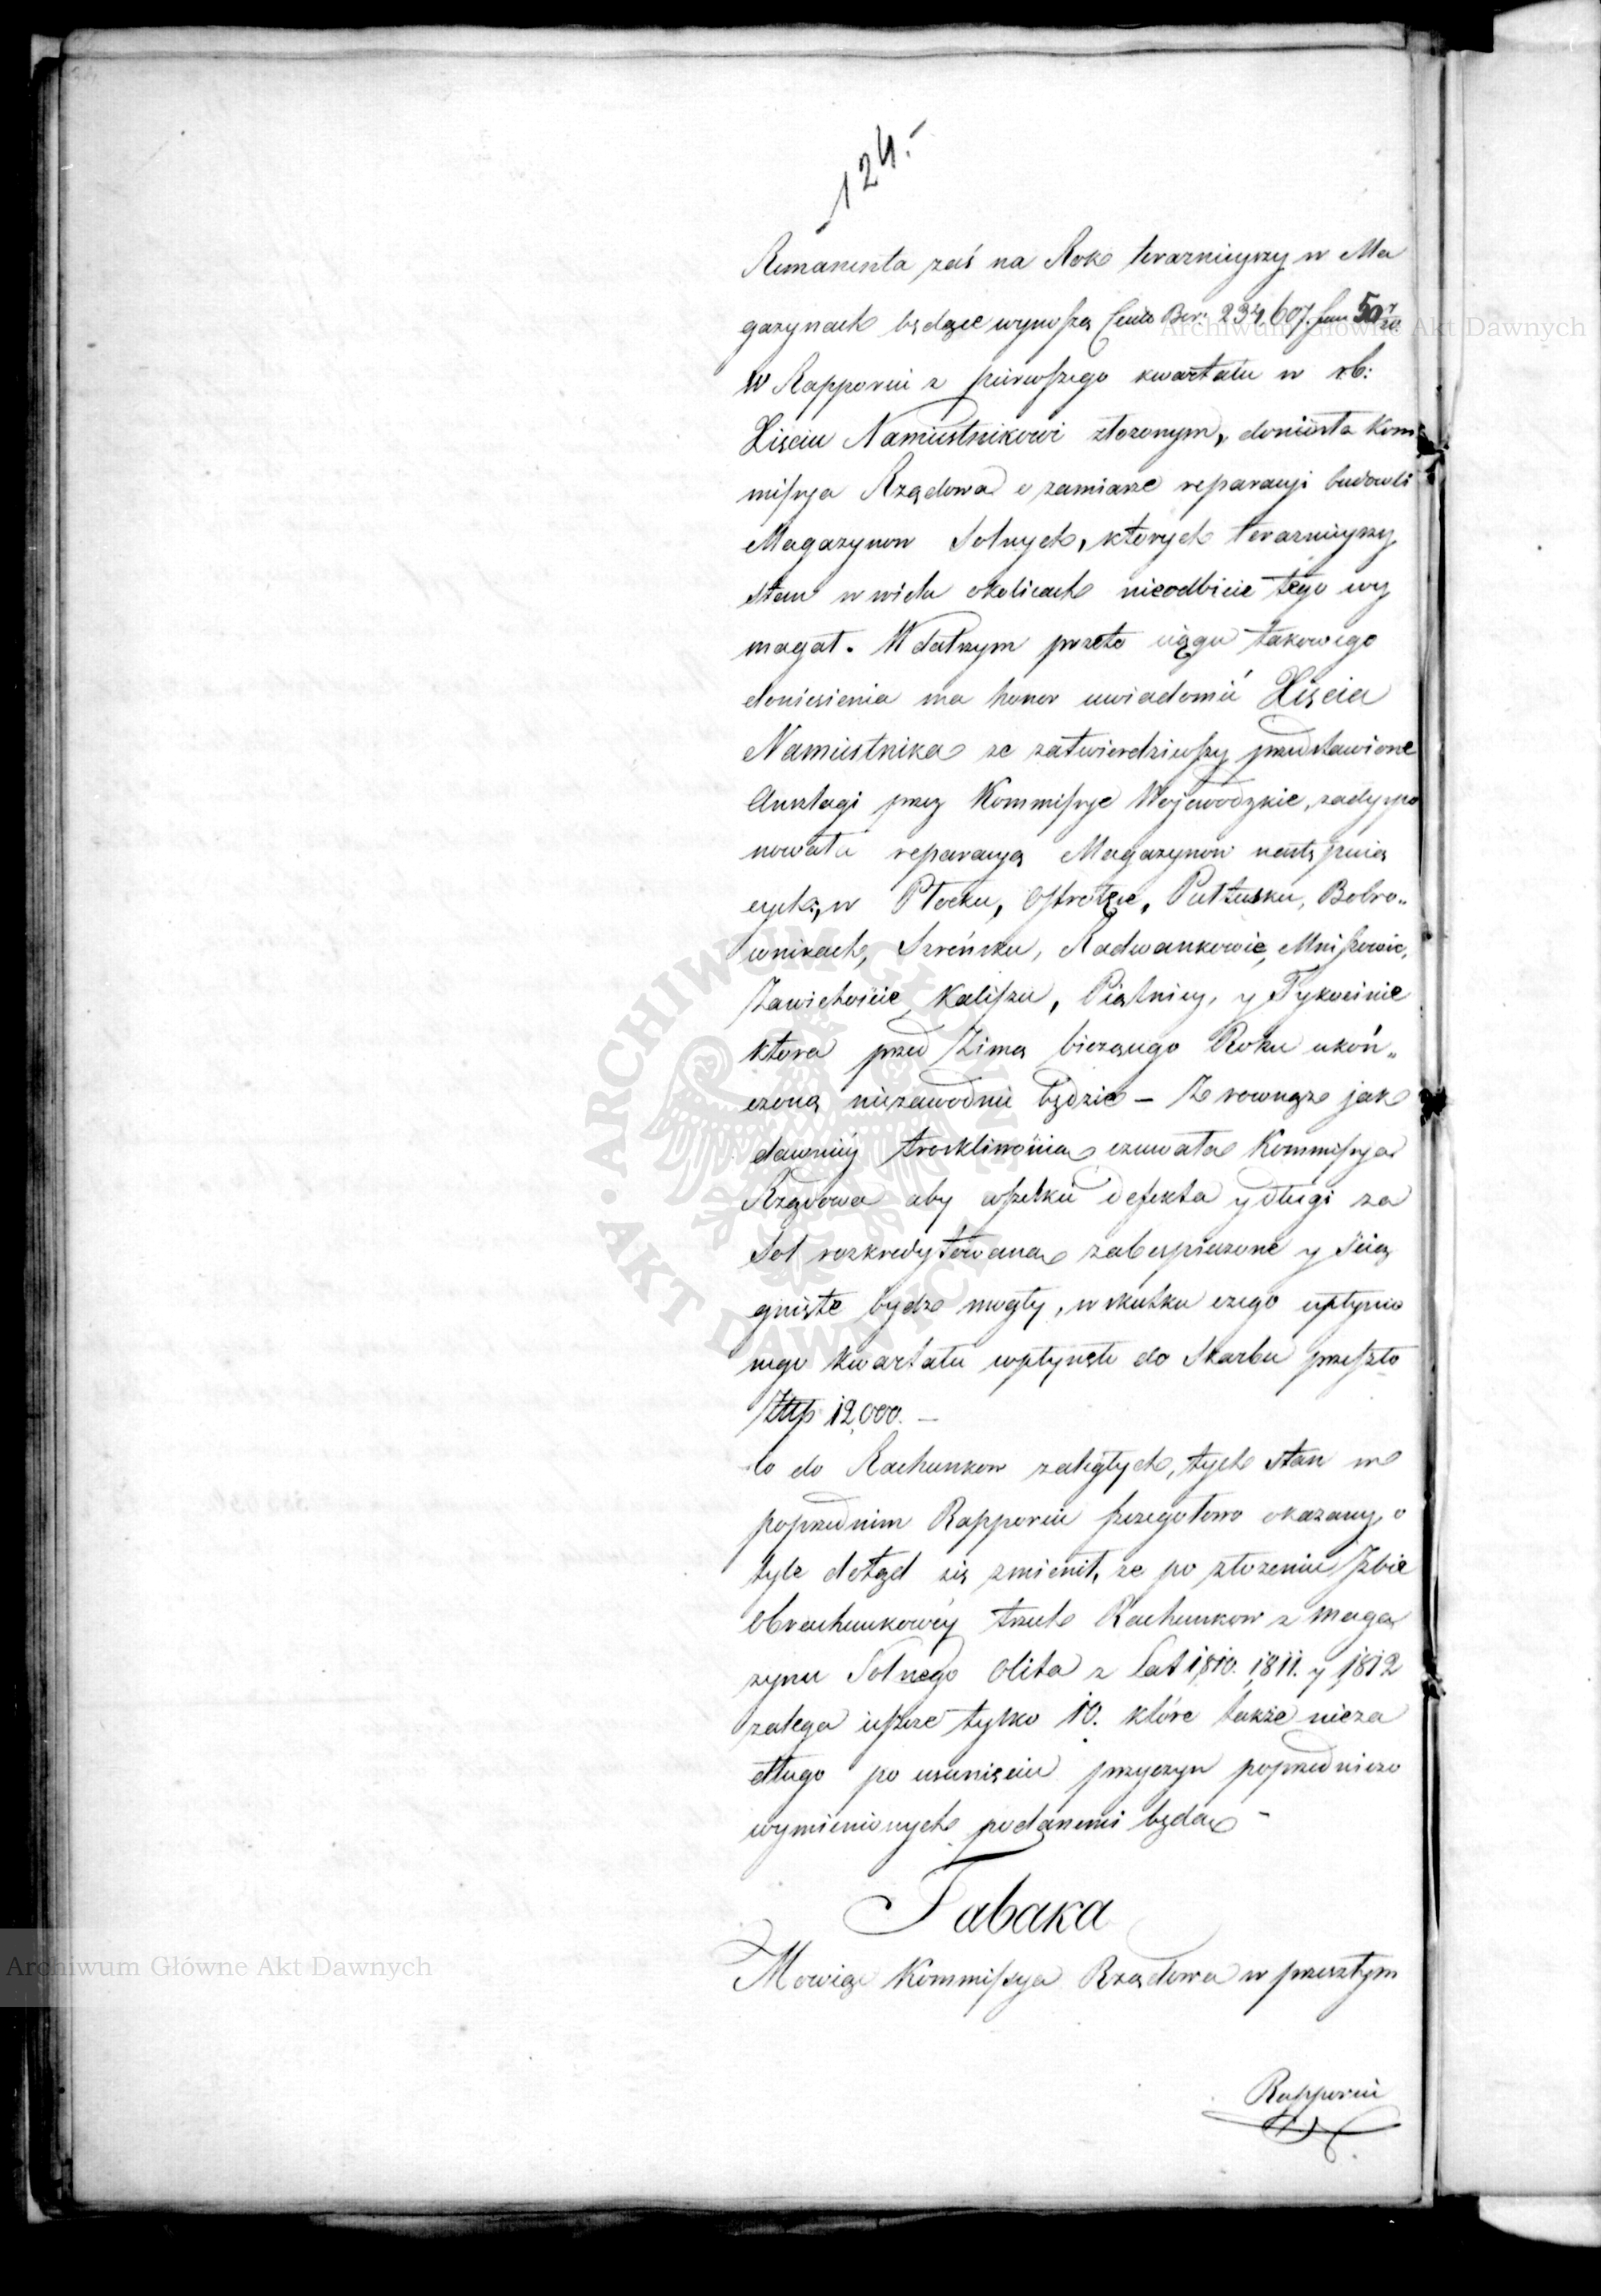 124.
Remanenta zaś na Rok terazniejszy w Ma
gazynach będące wynoszą Cent: Ber: 234,607. fun 50 7/20
Archiwum Główne Akt Dawnych
W Rapporcie z pierwszego kwartału w rb:
Xięciu Namiestnikowi złozonym, doniosła Kom
missya Rządowa o zamiarze reparacyi budowli
Magazynow Solnych, ktorych terazniejszy
stan w wielu okolicach nieodbicie tego wy
magał. W dalszym przeto ciągu takowego
doniesienia ma honor uwiadomić Xięcia
Namiestnika ze zatwierdziwszy przedstawione
Anszlagi przez Kommissye Wojewodzkie, zadyspo
nowała reparacyą Magazynow następuią
cych, w Płocku, Ostrołęce, Pułtusku, Bobro„
wnikach, Szreńsku, Radwankowie, Mniszewie,
Zawichoście, Kaliszu, Piątnicy, y Tykocinie
ktora przed Zimą bieżącego Roku ukoń„
czoną niezawodnie będzie – Z rownąże jak
dawniéy troskliwością czuwała Kommissya
Rządowa aby wszelkie defekta y długi za
Sol rozkredytowaną zabespieczone y ścią
gnięte bydz mogły, w skutku czego upłynio
nego kwartału wpłynęło do Skarbu przeszło
Złtp 12,000. –
Co do Rachunkow zaległych, tych stan w
poprzednim Rapporcie szczegołowo okazany, o
tyle dotąd się zmienił, ze po złozeniu Izbie
Obrachunkowéy trzech Rachunkow z Maga
zynu Solnego Olita z Lat 1810. 1811. y 1812
zalega ieszcze tylko 10. które także nieza
długo po usunięciu przyczyn poprzedniczo
wymienionych podanemi będą –
Tabaka
Archiwum Główne Akt Dawnych
Mowiąc Kommissya Rządowa w przeszłym
Rapporcie
ARCHIWUM GŁÓWNE
AKT DAWNYCH